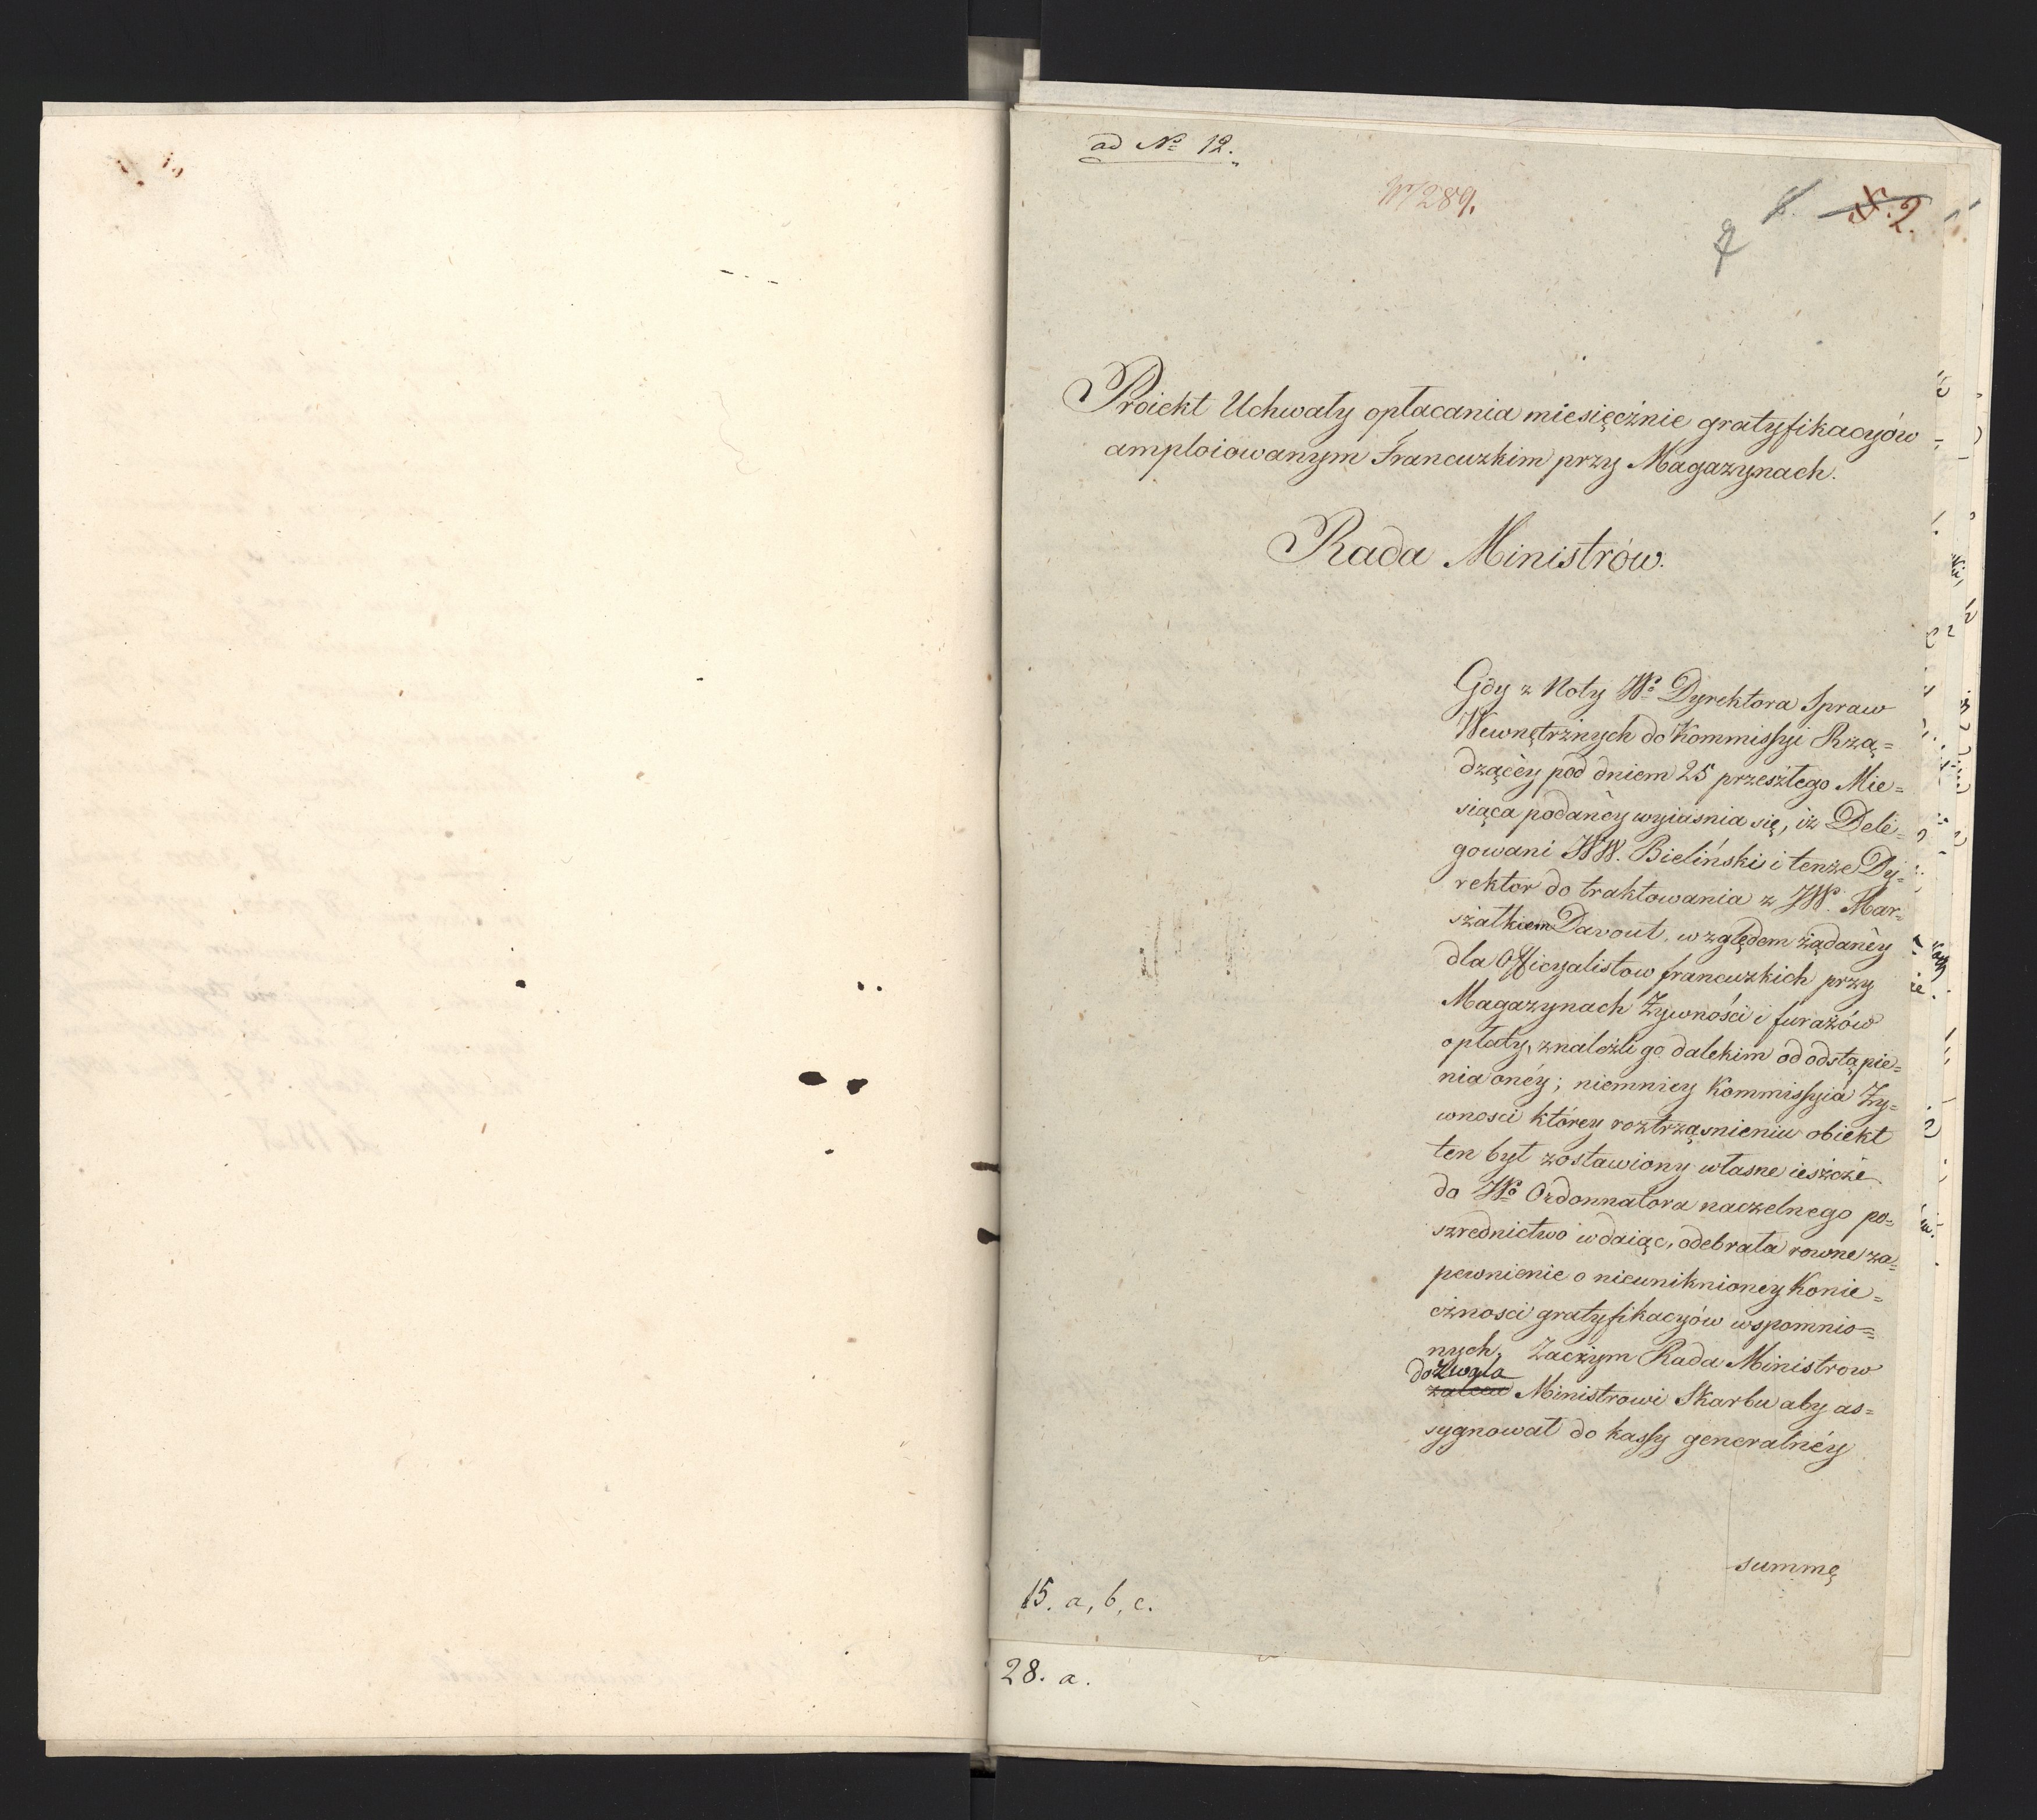 ad No 12.
N 289.
7
8. 2.
Proiekt Uchwały opłacania miesięcznie gratyfikacyów
amploiowanym Francuzkim przy Magazynach.
Rada Ministrów.
Gdy z Noty Wo Dyrektora Spraw
Wewnętrznych do Kommissyi Rzą=
dzącéy pod dniem 25 przeszłego Mie=
siąca podanéy wyiaśnia się, iż Dele=
gowani WW. Bieliński i tenże Dy=
rektor do traktowania z JW. Mar=
szałkiem Davout, względem żądanéy
dla Officyalistow francuzkich przy
Magazynach Żywności i furażów
opłaty, znaleźli go dalekim od odstąpie=
nia onéy; niemniey Kommissyia Ży=
wnosci którey roztrząsnieniu obiekt
ten był zostawiony własne ieszcze
do Wo Ordonnatora naczelnego po=
szrednictwo wdaiąc, odebrała rowne za=
pewnienie o nieuniknioney Konie=
cznosci gratyfikacyów wspomnio=
nych. Zaczym Rada Ministrow
dozwala
zaleca Ministrowi Skarbu aby as=
sygnował do kassy generalnéy
summę
15. a, b, c.
28. a.